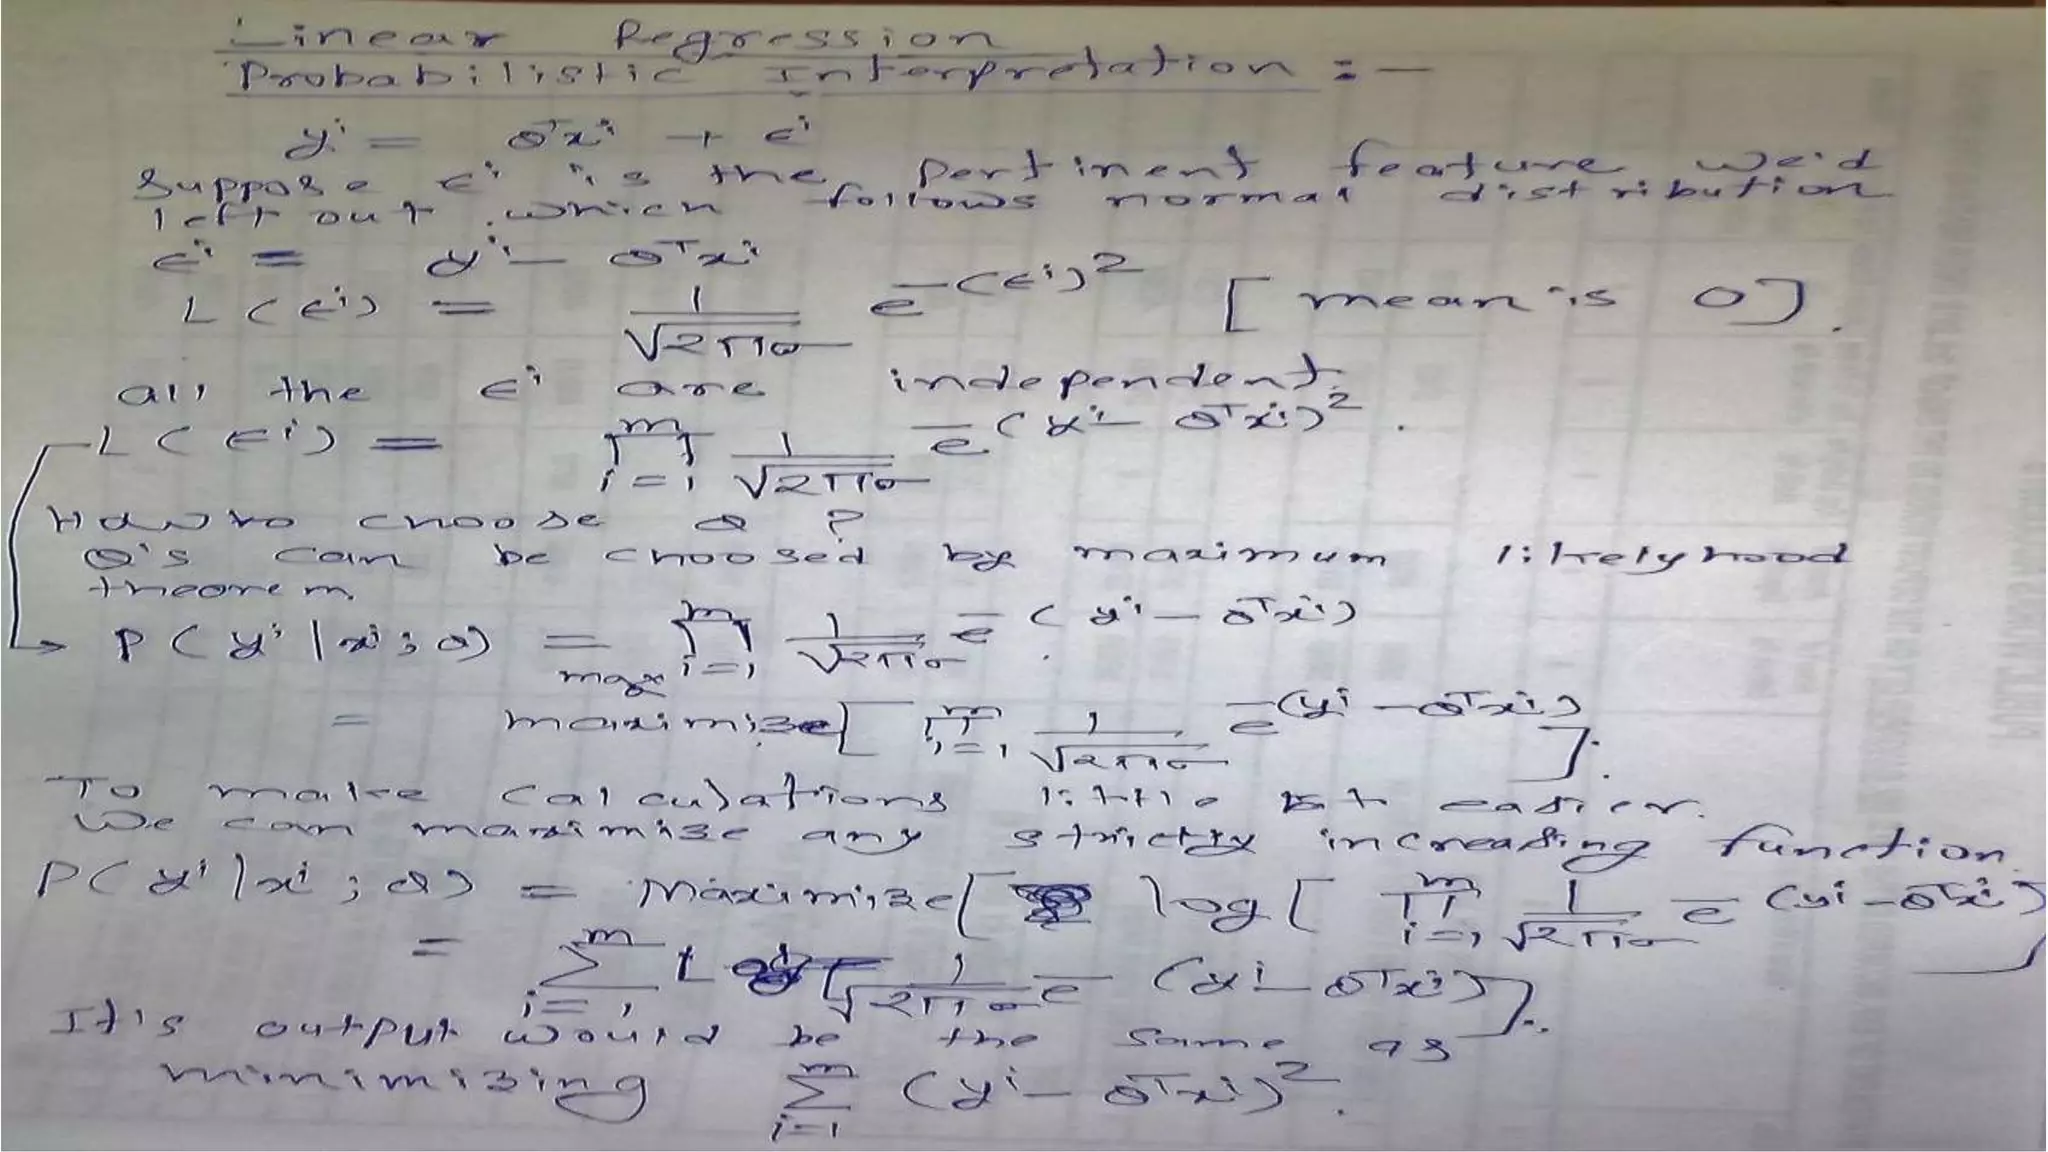 Linear Regression
Probabilistic Interpretation :-
yⁱ = θᵀxⁱ + ϵⁱ
Suppose ϵⁱ is the pertinent feature we'd
left out which follows normal distribution
ϵⁱ = yⁱ - θᵀxⁱ
L(ϵⁱ) = 1/√2πσ e^-(ϵⁱ)² [mean is 0].
all the ϵⁱ are independent.
L(ϵⁱ) = ∏_{i=1}^{m} 1/√2πσ e^-(yⁱ - θᵀxⁱ)².
How to choose θ ?
θ's can be choosed by maximum likelyhood
theorem.
P(yⁱ|xⁱ;θ) = max ∏_{i=1}^{m} 1/√2πσ e^-(yⁱ - θᵀxⁱ).
= maximize[∏_{i=1}^{m} 1/√2πσ e^-(yⁱ - θᵀxⁱ)].
To make calculations little bit easier.
We can maximize any strictly increasing function.
P(yⁱ|xⁱ;θ) = Maximize[log[∏_{i=1}^{m} 1/√2πσ e^-(yⁱ - θᵀxⁱ)]
= ∑_{i=1}^{m} Log[1/√2πσ e^-(yⁱ - θᵀxⁱ)].
It's output would be the same as
minimizing ∑_{i=1}^{m} (yⁱ - θᵀxⁱ)².